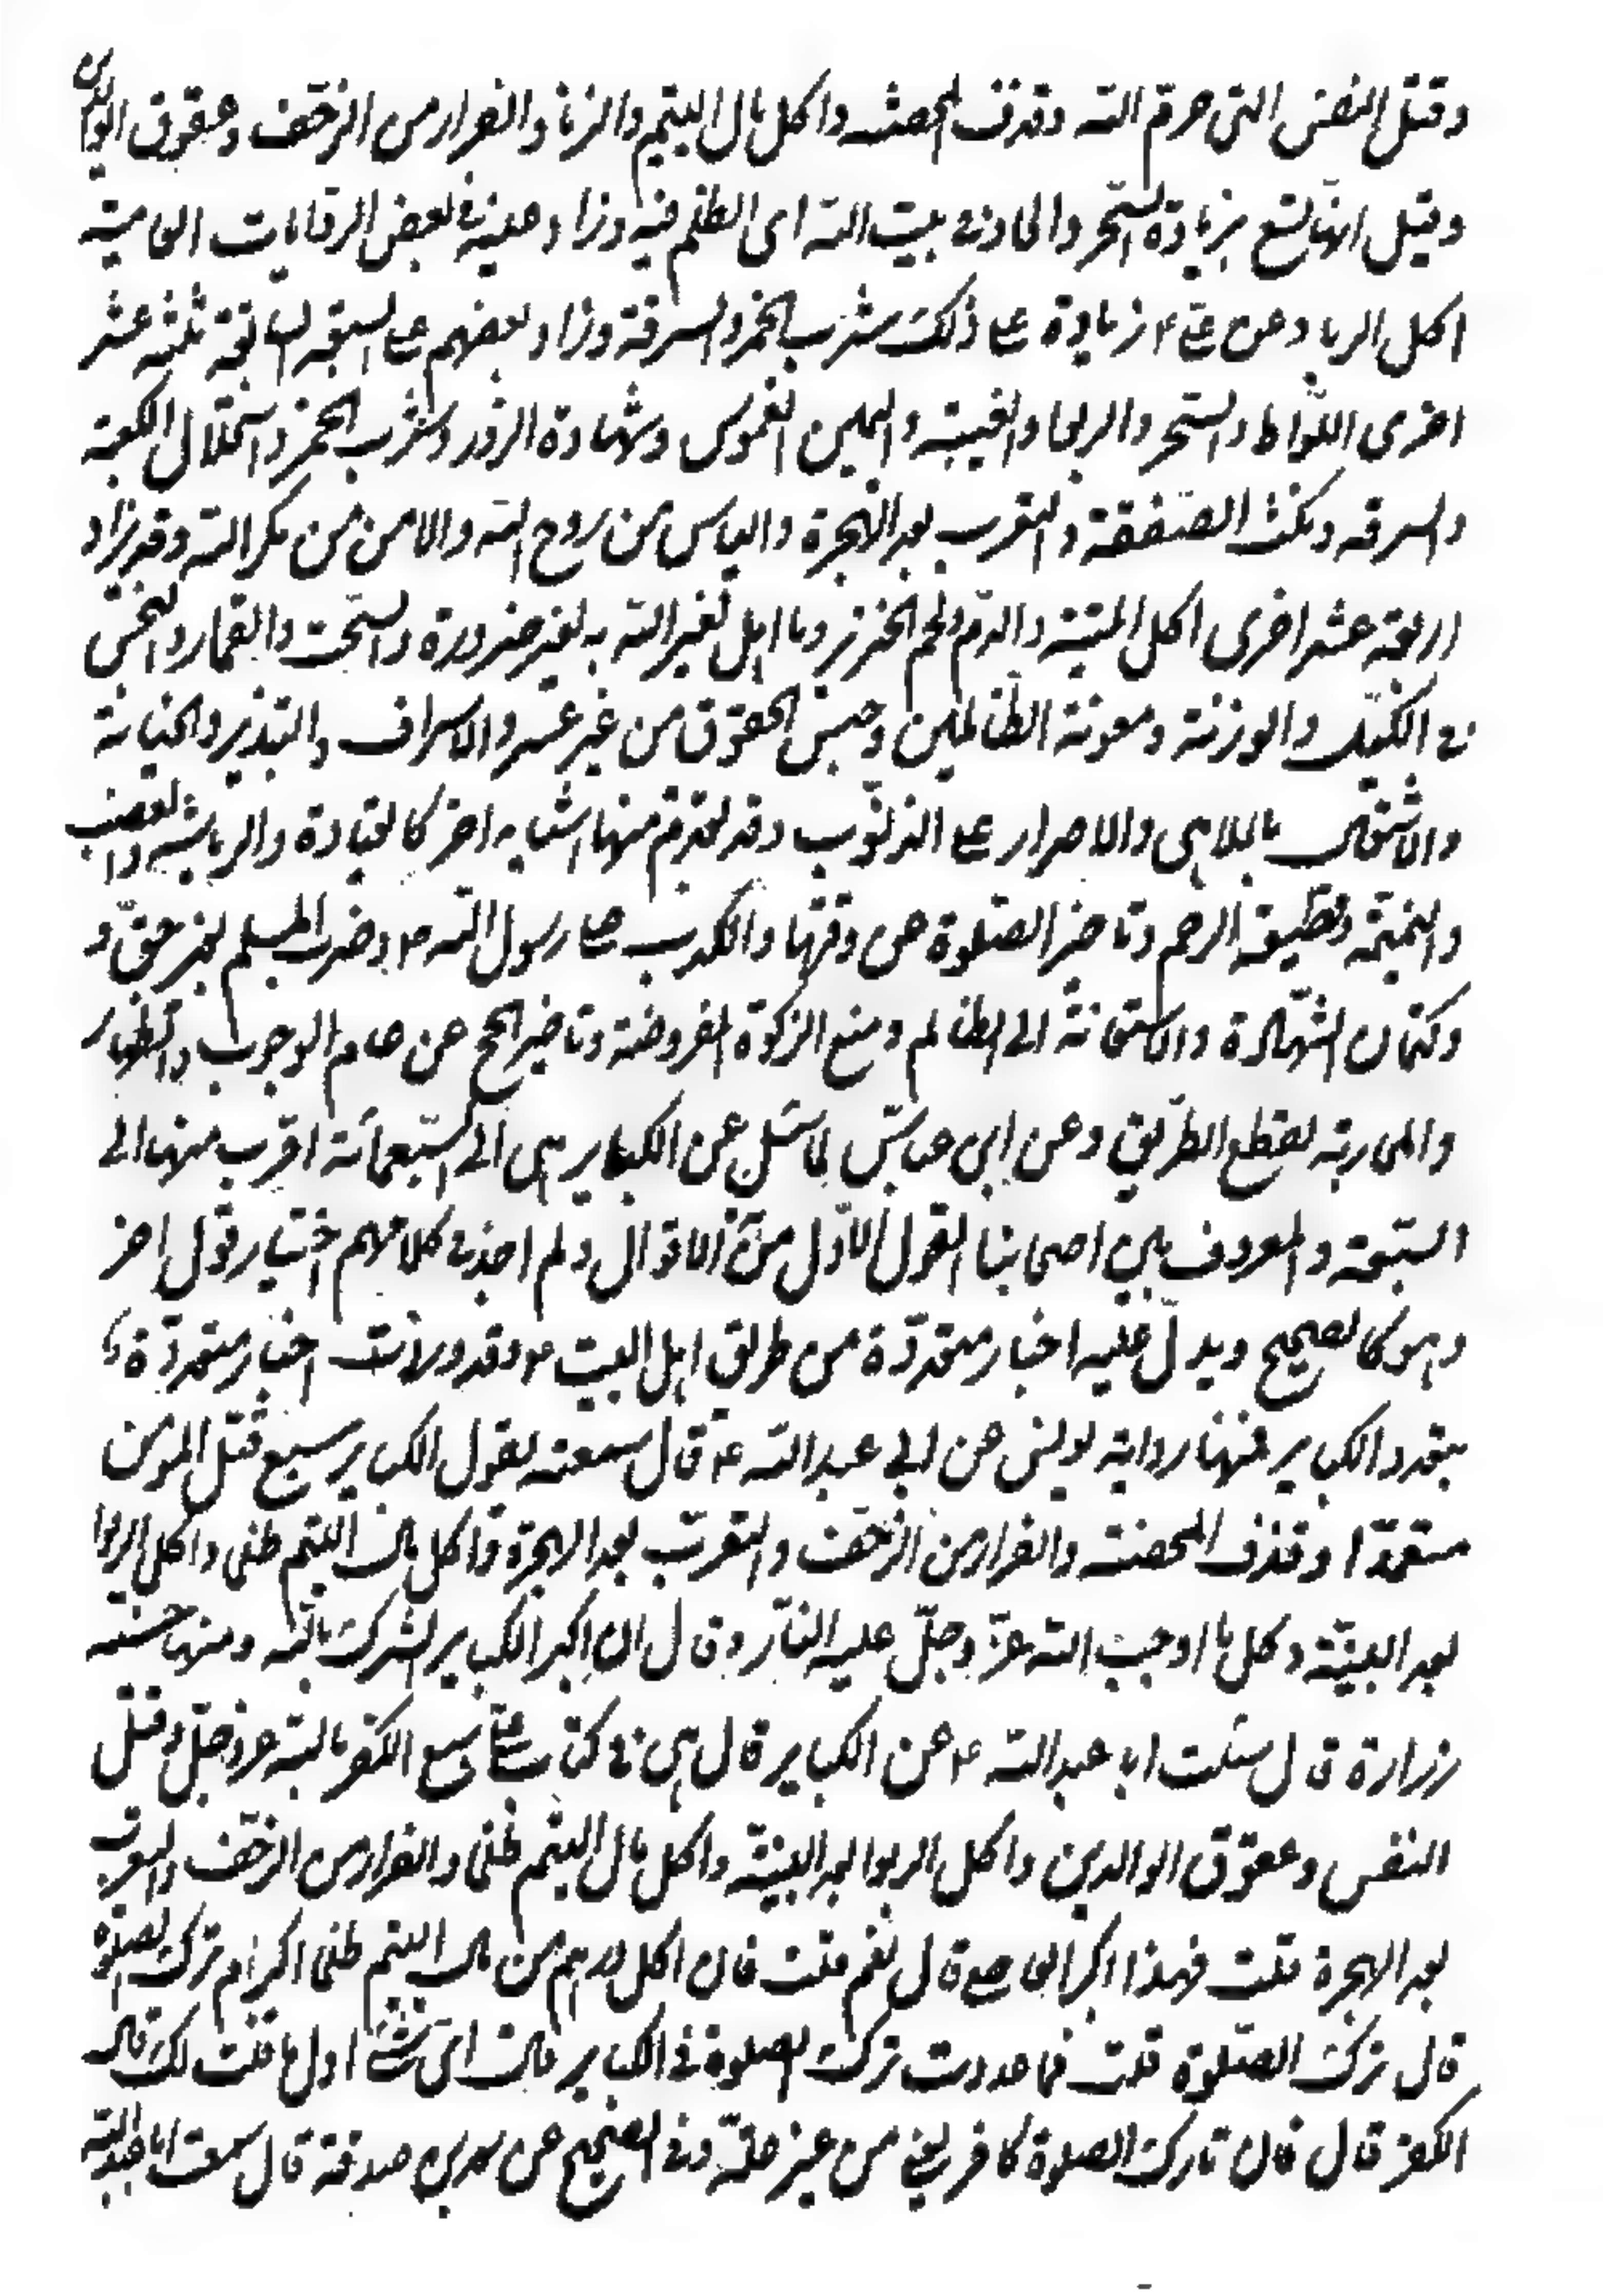 وقتل النفس التي حرم الله وقذف المحصنة واكل مال اليتيم والزنا والفرار من الزحف وعقوق الوالدين
وقيل انها تسع بزيادة السحر والالحاد في بيت الله اى الظلم فيه وزاد عليه في بعض الروايات العامية
اكل الربا وعن علي ع زيادة على ذلك شرب الخمر والسرقة وزاد بعضهم على السبعة السابقة ثلثة عشر
اخرى اللواط والسحر والربا والغيبة واليمين الغموس وشهادة الزور وشرب الخمر واستحلال الكعبة
والسرقه ونكث الصفقة والتعرب بعد الهجرة والياس من روح الله والامن من مكر الله وقد زاد
اربعة عشر اخرى اكل الميتة والدم ولحم الخنزير وما اهل لغير الله به لغير ضرورة والسحت والقمار والبخس
في الكيل والوزنة ومعونة الظالمين وحبس الحقوق من غير عسر والاسراف والتبذير والخيانة
والاشتغال بالملاهى والاصرار على الذنوب وقد تقدم منها اشياء اخر كالقيادة والدياثة والغصب
والنميمة وقطيعة الرحم وتاخير الصلوة عن وقتها والكذب على رسول الله ص وضرب المسلم بغير حق و
وكتمان الشهادة والاستعانة الى الظالم ومنع الزكوة المفروضة وتاخير الحج عن عام الوجوب والظهار
والمحاربة بقطع الطريق وعن ابن عباس لما سئل عن الكباير هى الى السبعمائة اقرب منها الى
السبعة والمعروف بين اصحابنا القول الاول من الاقوال ولم اجد في كلامهم اختيار قول اخر
وهو كالصحيح ويدل عليه اخبار متعددة من طريق اهل البيت ع وقد وردت اخبار متعددة
بتعدد الكباير فمنها رواية يونس عن ابي عبد الله ع قال سمعته يقول الكباير سبع قتل المؤمن
متعمدا وقذف المحصنة والفرار من الزحف والتعرب بعد الهجرة واكل مال اليتيم ظلما واكل الربوا
بعد البينة وكل ما اوجب الله عز وجل عليه النار وقال ان اكبر الكباير الشرك بالله ومنها حسنة
زرارة قال سئلت ابا عبد الله ع عن الكباير قال هى في كتاب علي ع سبع الكفر بالله عز وجل وقتل
النفس وعقوق الوالدين واكل الربوا بعد البينة واكل مال اليتيم ظلما والفرار من الزحف والتعرب
بعد الهجرة قلت فهذا اكبر المعاصي قال نعم قلت فان اكل درهم من مال اليتيم ظلما اكبر ام ترك الصلوة
قال ترك الصلوة قلت فما عددت ترك الصلوة في الكباير فقال اى شئ اول ما قلت لك قال
الكفر قال فان تارك الصلوة كافر يعني من غير علة وفي الصحيح عن مسعدة بن صدقة قال سمعت ابا عبد الله